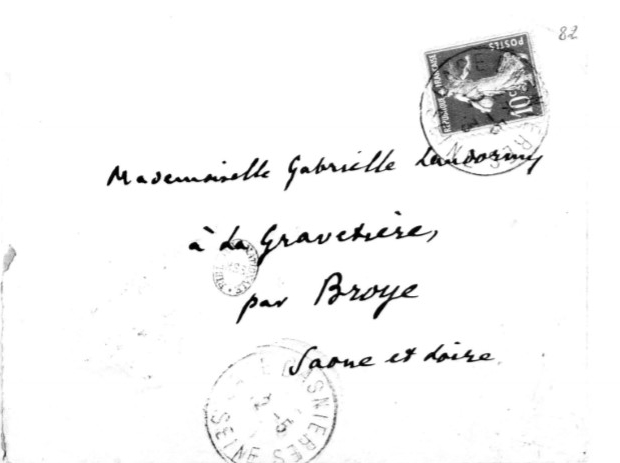 82
POSTES
REPUBLIQUE FRANÇAISE
10 c
Mademoiselle Gabrielle Landormy
à la Gravetière,
par Broye
Saone et Loire
ASNIERES
SEINE